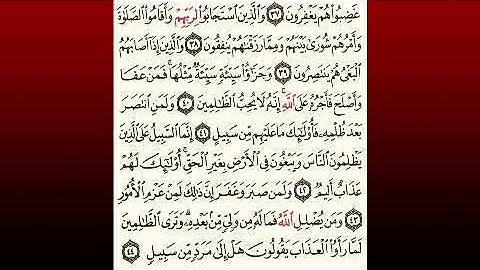 غَضِبُوا۟ هُمْ يَغْفِرُونَ ٣٧ وَٱلَّذِينَ ٱسْتَجَابُوا۟ لِرَبِّهِمْ وَأَقَامُوا۟ ٱلصَّلَوٰةَ
وَأَمْرُهُمْ شُورَىٰ بَيْنَهُمْ وَمِمَّا رَزَقْنَٰهُمْ يُنفِقُونَ ٣٨ وَٱلَّذِينَ إِذَآ أَصَابَهُمُ
ٱلْبَغْىُ هُمْ يَنتَصِرُونَ ٣٩ وَجَزَٰٓؤُا۟ سَيِّئَةٍ سَيِّئَةٌ مِّثْلُهَا ۖ فَمَنْ عَفَا
وَأَصْلَحَ فَأَجْرُهُۥ عَلَى ٱللَّهِ ۚ إِنَّهُۥ لَا يُحِبُّ ٱلظَّٰلِمِينَ ٤٠ وَلَمَنِ ٱنتَصَرَ
بَعْدَ ظُلْمِهِۦ فَأُو۟لَٰٓئِكَ مَا عَلَيْهِم مِّن سَبِيلٍ ٤١ إِنَّمَا ٱلسَّبِيلُ عَلَى ٱلَّذِينَ
يَظْلِمُونَ ٱلنَّاسَ وَيَبْغُونَ فِى ٱلْأَرْضِ بِغَيْرِ ٱلْحَقِّ ۚ أُو۟لَٰٓئِكَ لَهُمْ
عَذَابٌ أَلِيمٌ ٤٢ وَلَمَن صَبَرَ وَغَفَرَ إِنَّ ذَٰلِكَ لَمِنْ عَزْمِ ٱلْأُمُورِ
٤٣ وَمَن يُضْلِلِ ٱللَّهُ فَمَا لَهُۥ مِن وَلِىٍّ مِّنۢ بَعْدِهِۦ ۗ وَتَرَى ٱلظَّٰلِمِينَ
لَمَّا رَأَوُا۟ ٱلْعَذَابَ يَقُولُونَ هَلْ إِلَىٰ مَرَدٍّ مِّن سَبِيلٍ ٤٤